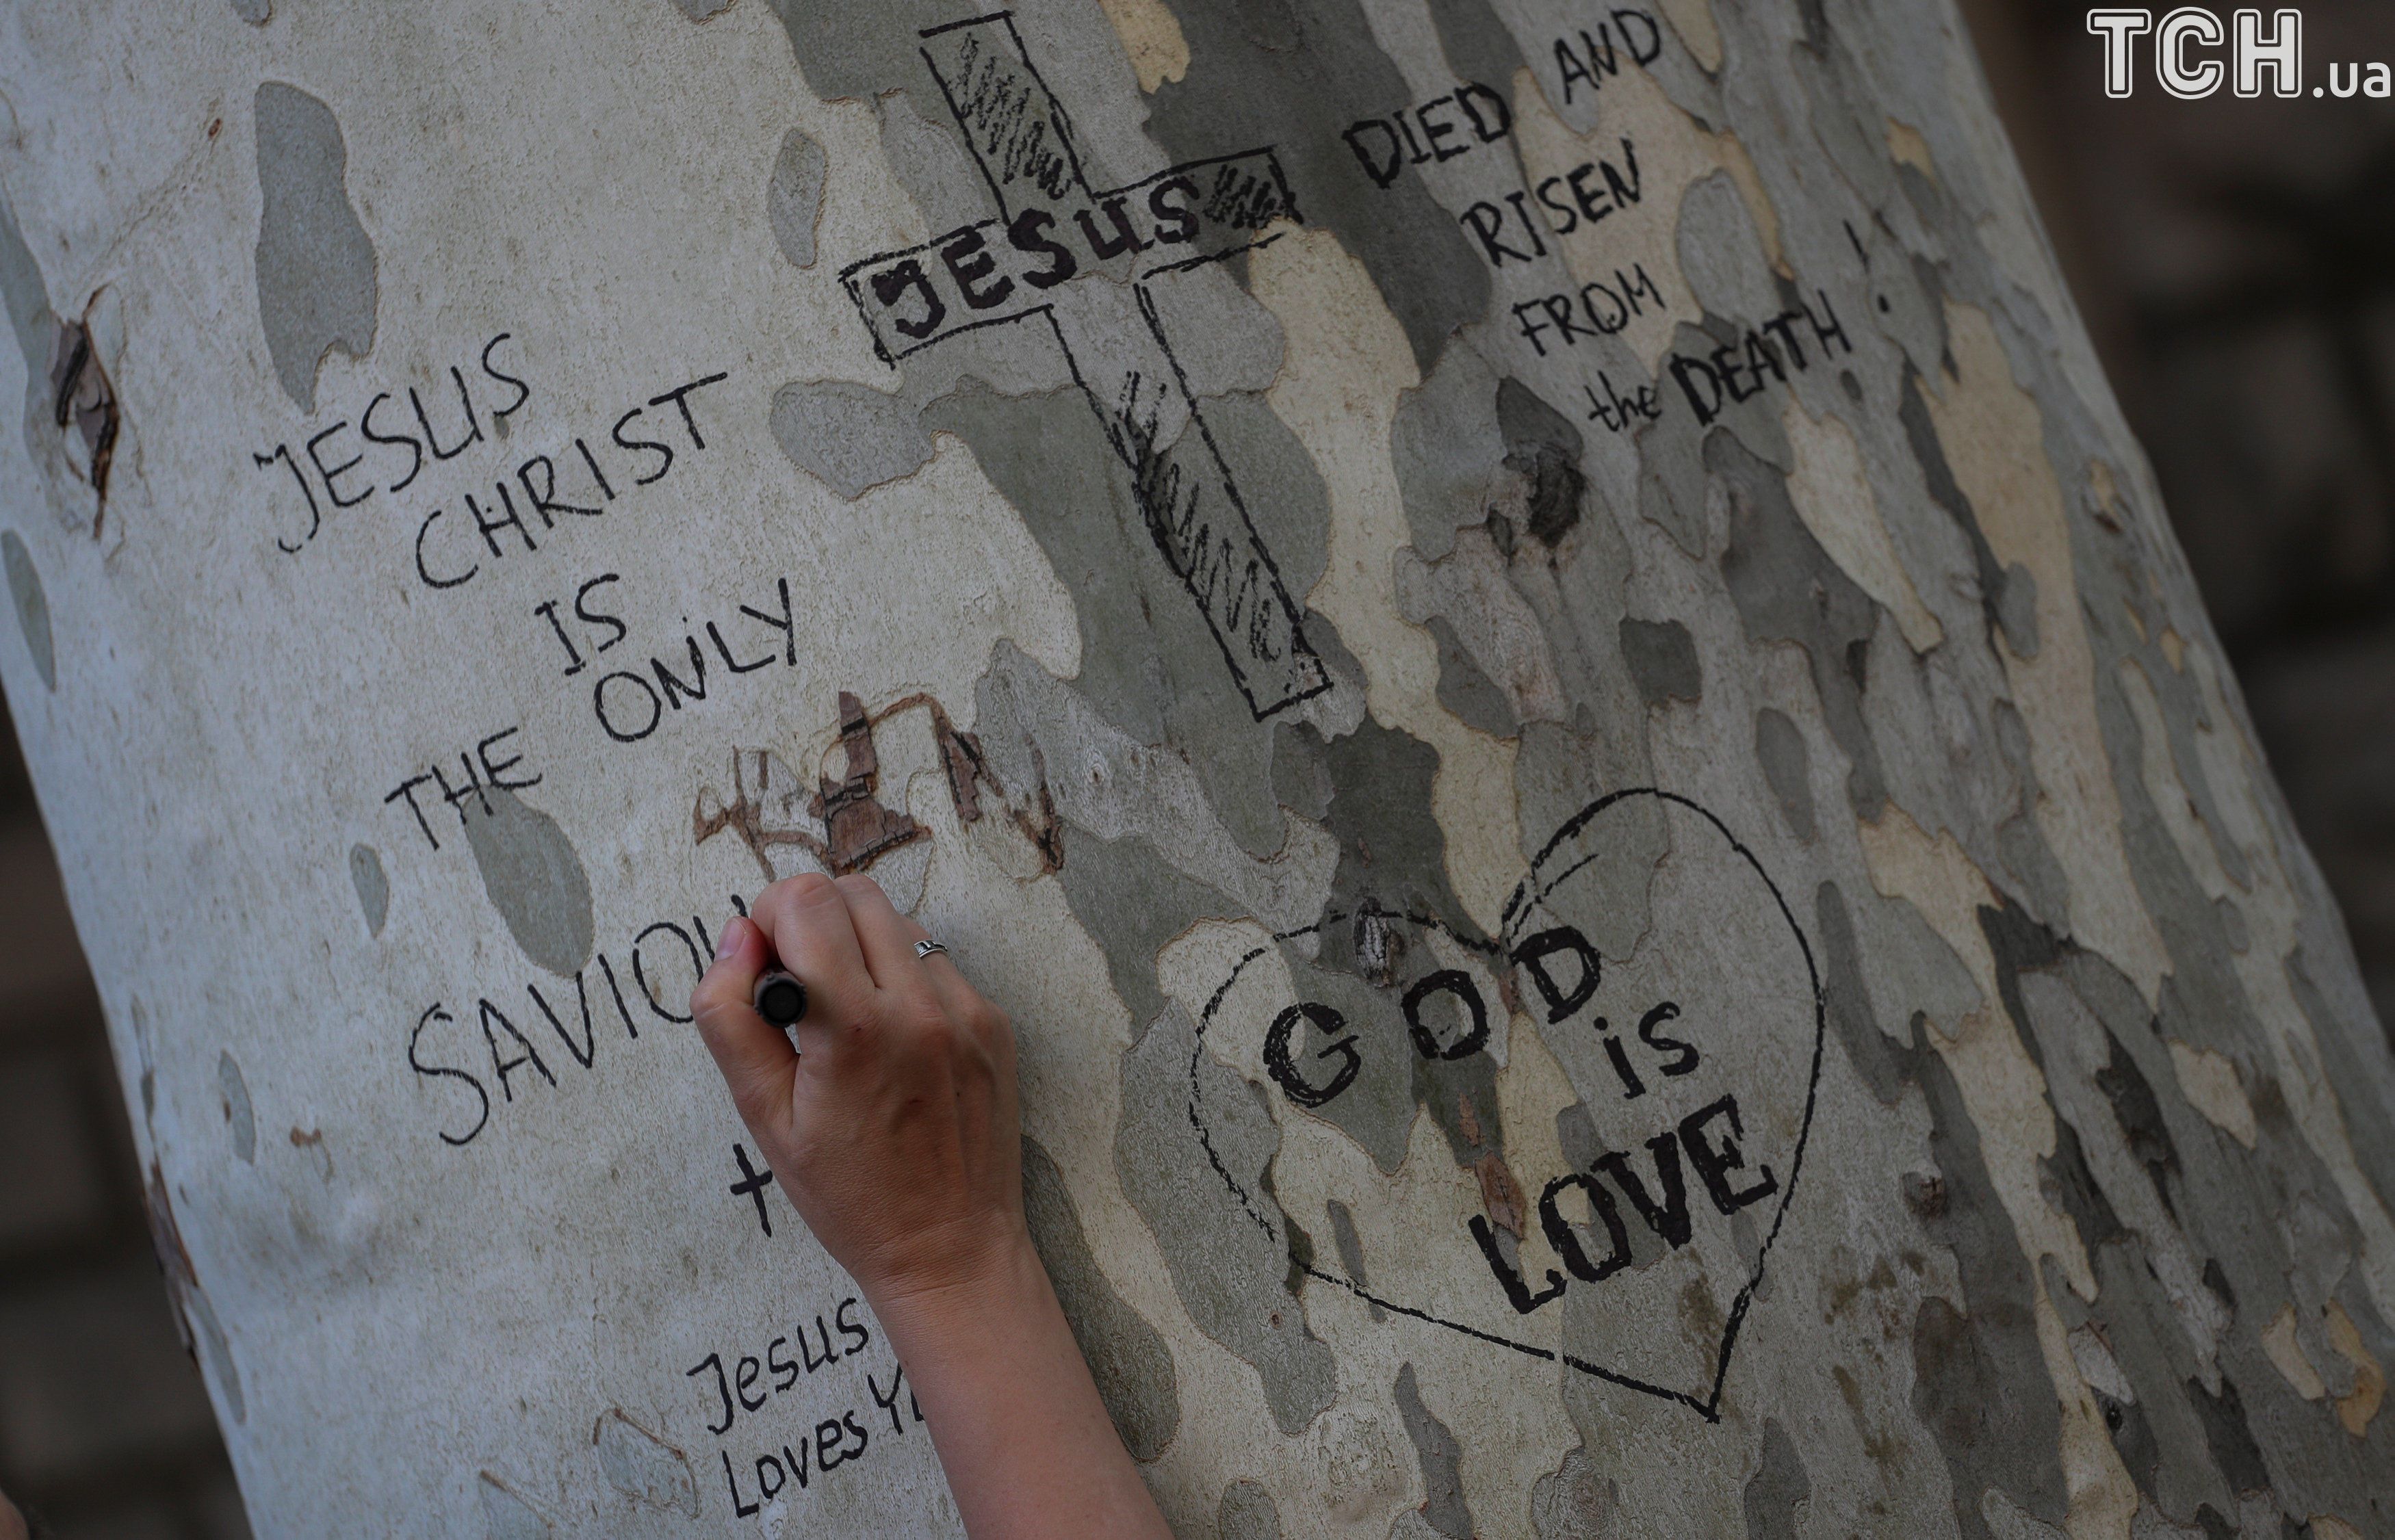 TCH.ua
JESUS
DIED AND
RISEN
FROM
the DEATH!
JESUS
CHRIST
IS
THE ONLY
SAVIOU
GOD
is
LOVE
Jesus
Loves